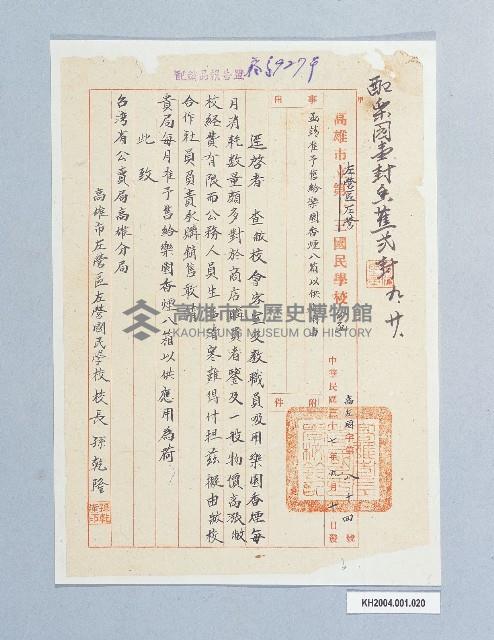 配給品報告單
高字927号
配樂園壹封香蕉弐封 九廿
高雄市左營區左營國民學校
事由
函請准予售給樂園香煙八箱以供應用由
附件
高左國字第八十四號
中華民國三十七年九月十日發
逕啓者 查敝校會客室及教職員吸用樂園香煙每
月消耗數量頗多對於商店購買者鑒及一般物價高漲敝
校經費有限而公務人員生活者寒難得什担茲擬由敝校
合作社員負責承購銷售敢請
貴局每月准予售給樂園香煙八箱以供應用為荷
此致
台灣省公賣局高雄分局
高雄市左營區左營國民學校校長孫乾隆
高雄市立歷史博物館
KAOHSIUNG MUSEUM OF HISTORY
KH2004.001.020